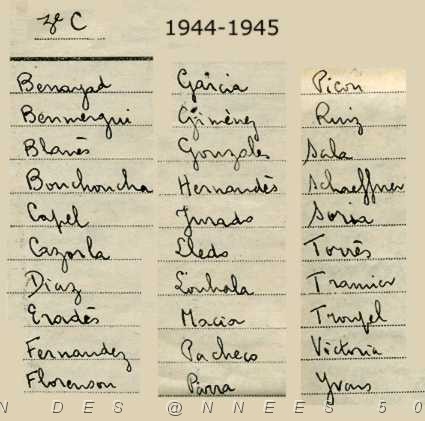 7e C
1944-1945
Benayad
Benmergui
Blanès
Bouchoucha
Capel
Cazorla
Diaz
Eradès
Fernandez
Florenson
Garcia
Giménez
Gonzales
Hernandès
Jurado
Lledo
Louhala
Macia
Pacheco
Parra
Picon
Ruiz
Sala
Schaeffner
Soria
Torrès
Tramier
Victoria
Yvars
N DES @NNEES 50